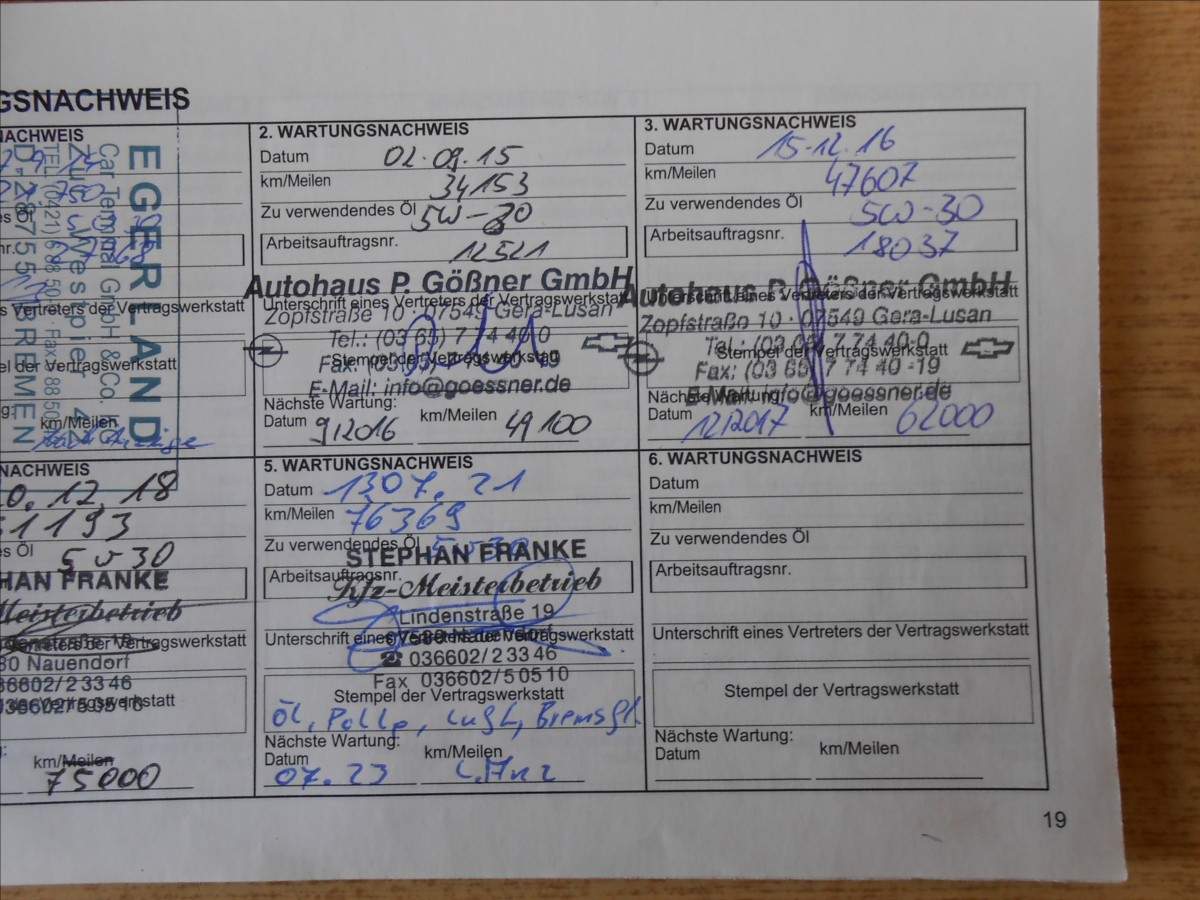 GSNACHWEIS
NACHWEIS
es Öl
nr.
s Vertreters der Vertragswerkstatt
el der Vertragswerkstatt
km/Meilen
EGERLAND
Car Terminal GmbH & Co. KG
D-28755 BREMEN
2. WARTUNGSNACHWEIS
Datum 02.09.15
km/Meilen 34153
Zu verwendendes Öl 5W-30
Arbeitsauftragsnr. 12521
Autohaus P. Gößner GmbH
Unterschrift eines Vertreters der Vertragswerkstatt
Zopfstraße 10 · 07549 Gera-Lusan
Tel.: (03 65) 7 74 40 0
Stempel der Vertragswerkstatt
Fax: (03 65) 7 74 40 -19
E-Mail: info@goessner.de
Nächste Wartung:
Datum 9/2016 km/Meilen 49100
3. WARTUNGSNACHWEIS
Datum 15.12.16
km/Meilen 47607
Zu verwendendes Öl 5W-30
Arbeitsauftragsnr. 18037
Autohaus P. Gößner GmbH
Unterschrift eines Vertreters der Vertragswerkstatt
Zopfstraße 10 · 07549 Gera-Lusan
Tel.: (03 65) 7 74 40-0
Stempel der Vertragswerkstatt
Fax: (03 65) 7 74 40 -19
E-Mail: info@goessner.de
Nächste Wartung:
Datum 12/2017 km/Meilen 62000
NACHWEIS
0.12.18
1193
es Öl 5W30
HAN FRANKE
Meisterbetrieb
Vertreters der Vertragswerkstatt
80 Nauendorf
36602/2 33 46
der Vertragswerkstatt
036602/5 05 10
km/Meilen
75000
5. WARTUNGSNACHWEIS
Datum 13.07.21
km/Meilen 76369
Zu verwendendes Öl 5W30
STEPHAN FRANKE
Arbeitsauftragsnr.
Kfz-Meisterbetrieb
Lindenstraße 19
Unterschrift eines Vertreters der Vertragswerkstatt
☎ 036602/2 33 46
Fax 036602/5 05 10
Stempel der Vertragswerkstatt
Öl,
Nächste Wartung:
Datum km/Meilen
07.23
6. WARTUNGSNACHWEIS
Datum
km/Meilen
Zu verwendendes Öl
Arbeitsauftragsnr.
Unterschrift eines Vertreters der Vertragswerkstatt
Stempel der Vertragswerkstatt
Nächste Wartung:
Datum km/Meilen
19